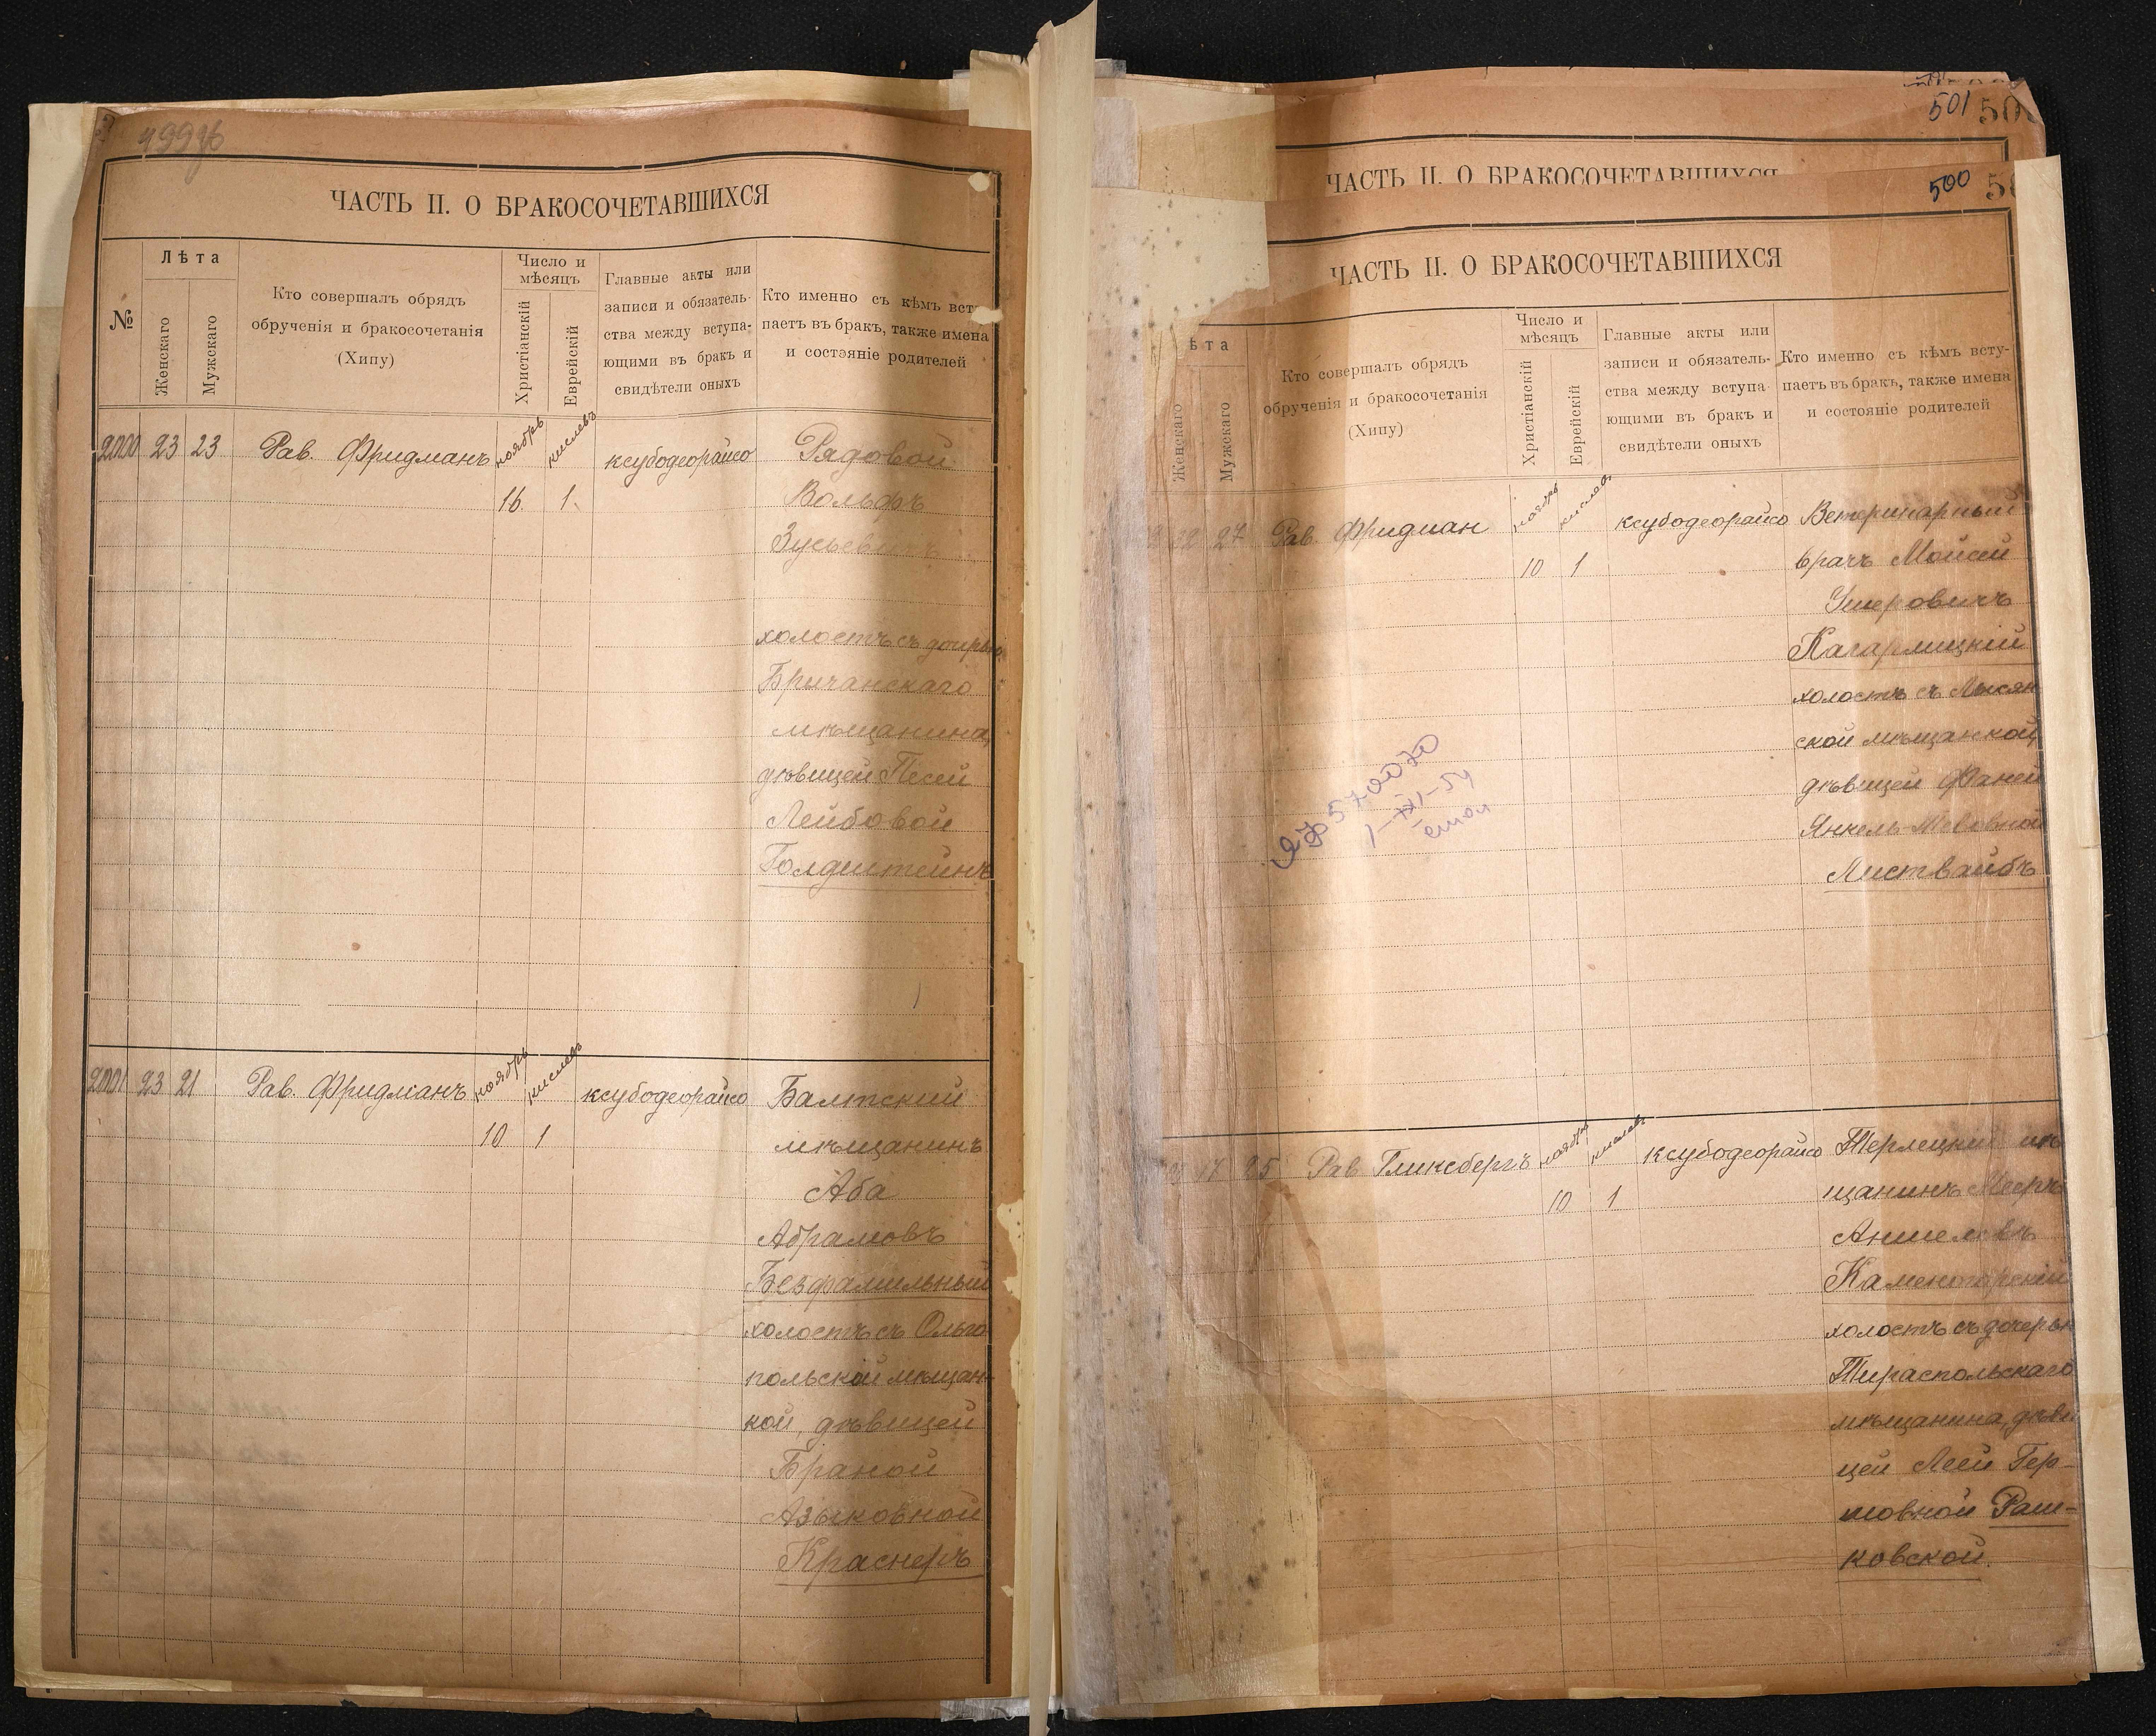 ЧАСТЬ II. О БРАКОСОЧЕТАВШИХСЯ
№
Лѣта
Женскаго
Мужскаго
Кто совершалъ обрядъ
обрученія и бракосочетанія
(Хипу)
Число и
мѣсяцъ
Христіанскій
Еврейскій
Главные акты или
записи и обязатель-
ства между вступа-
ющими въ бракъ и
свидѣтели оныхъ
Кто именно съ кѣмъ всту
паетъ въ бракъ, также имена
и состояніе родителей
2000 23 23 Рав. Фридманъ ноябрь кислевъ ксубодеорайсо Рядовой
16. 1. Вольфъ
Зусьевичъ
холостъ съ дочерью
Бричанскаго
мѣщанина,
дѣвицей Песей
Лейбовой
Голдштейнъ
2001 23 21 Рав. Фридманъ ноябрь кислевъ ксубодеорайсо Балтский
10 1 мѣщанинъ
Аба
Абрамовъ
Безфамильный
холостъ съ Ольго
польской мѣщан-
кой, дѣвицей
Браной
Азыковной
Краснеръ
501
ЧАСТЬ II. О БРАКОСОЧЕТАВШИХСЯ
500
ЧАСТЬ II. О БРАКОСОЧЕТАВШИХСЯ
ѣта
Женскаго
Мужскаго
Кто совершалъ обрядъ
обрученія и бракосочетанія
(Хипу)
Число и
мѣсяцъ
Христіанскій
Еврейскій
Главные акты или
записи и обязатель-
ства между вступа-
ющими въ бракъ и
свидѣтели оныхъ
Кто именно съ кѣмъ всту-
паетъ въ бракъ, также имена
и состояніе родителей
22 27 Рав. Фридман ноябрь кислевъ ксубодеорайсо Ветеринарный
10 1 врачъ Мойсей
Ушеровичъ
Кагарлицкій
холостъ съ Лысян
ской мѣщанкой,
дѣвицей Фаней
Янкель-Мововной
Листвайбъ
17 25 Рав Гликсбергъ ноябрь кислевъ ксубодеорайсо Терлецкий мѣ
10 1 щанинъ Мееръ
Аншелевъ
Каментарскій
холостъ съ дочерью
Тираспольскаго
мѣщанина, дѣви
цей Леей Гер-
шовной Раш-
ковской.